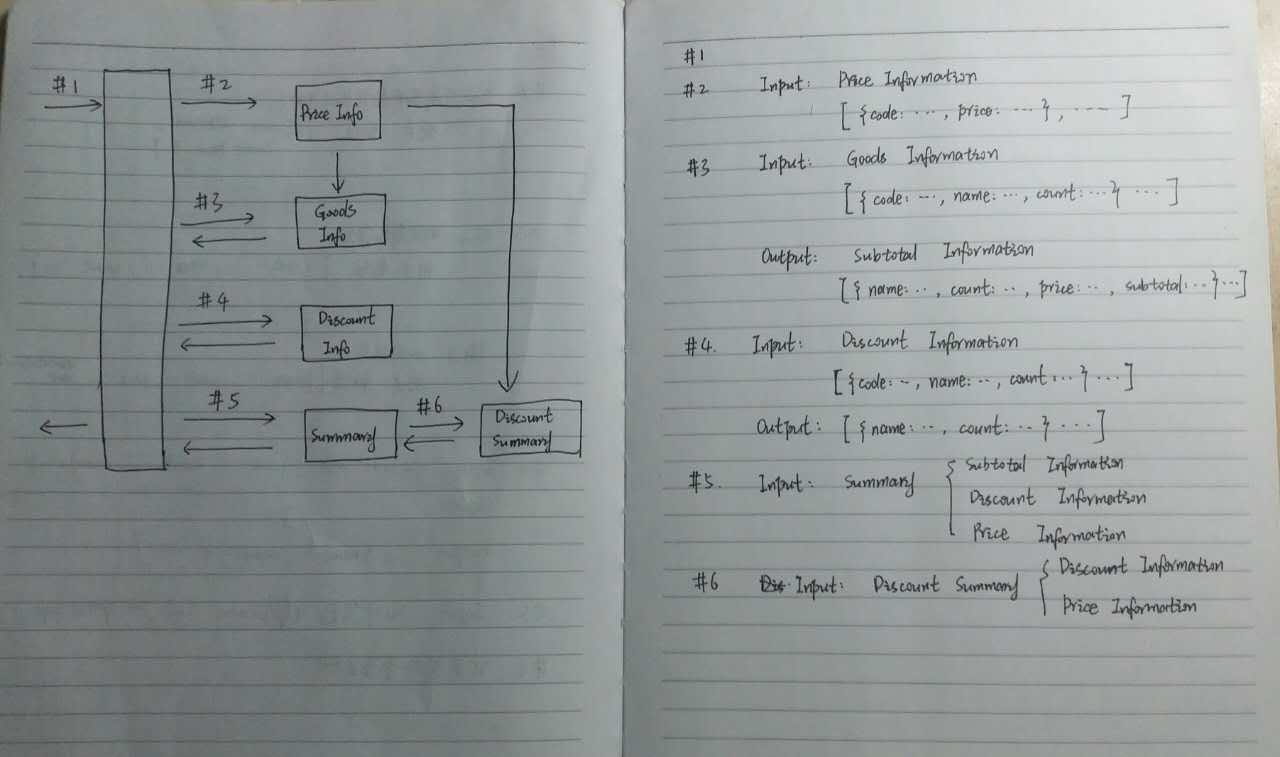 #1
#2
Price Info
#3
Goods
Info
#4
Discount
Info
#5
#6
Summary
Discount
Summary
#1
#2 Input: Price Information
[ {code: ..., price: ... }, ... ]
#3 Input: Goods Information
[ { code: ..., name: ..., count: ... } ... ]
Output: Subtotal Information
[ { name: .. , count: .. , price: .. , subtotal: .. } ... ]
#4. Input: Discount Information
[ {code: .., name: .., count: ... } ... ]
Output: [ { name: .. , count: .. } ... ]
#5. Input: Summary { Subtotal Information
Discount Information
Price Information
#6 Dis. Input: Discount Summary { Discount Information
Price Information